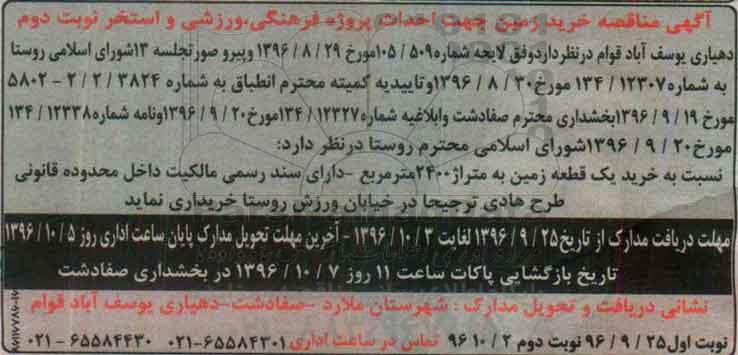 آگهی مناقصه خرید زمین جهت احداث پروژه فرهنگی،ورزشی و استخر نوبت دوم
دهیاری یوسف آباد قوام درنظرداردوفق لایحه شماره۱۰۵/۵۰۹مورخ ۱۳۹۶/۸/۲۹ وپیرو صورتجلسه ۱۳شورای اسلامی روستا
به شماره۱۳۴/۱۲۳۰۷ مورخ۱۳۹۶/۸/۳۰وتاییدیه کمیته محترم انطباق به شماره ۵۸۰۲-۲/۲/۳۸۲۴
مورخ ۱۳۹۶/۹/۱۹بخشداری محترم صفادشت وابلاغیه شماره۱۳۴/۱۲۳۲۷مورخ۱۳۹۶/۹/۲۰ونامه شماره۱۳۴/۱۲۳۳۸
مورخ۱۳۹۶/۹/۲۰شورای اسلامی محترم روستا درنظر دارد:
نسبت به خرید یک قطعه زمین به متراژ۲۴۰۰مترمربع -دارای سند رسمی مالکیت داخل محدوده قانونی
طرح هادی ترجیحا در خیابان ورزش روستا خریداری نماید
مهلت دریافت مدارک از تاریخ۱۳۹۶/۹/۲۵ لغایت ۱۳۹۶/۱۰/۳ - آخرین مهلت تحویل مدارک پایان ساعت اداری روز ۱۳۹۶/۱۰/۵
تاریخ بازگشایی پاکات ساعت ۱۱ روز ۱۳۹۶/۱۰/۷ در بخشداری صفادشت
نشانی دریافت و تحویل مدارک : شهرستان ملارد -صفادشت-دهیاری یوسف آباد قوام
نوبت اول۹۶/۹/۲۵ نوبت دوم ۹۶/۱۰/۲ تماس در ساعت اداری ۰۲۱-۶۵۵۸۴۳۰۱ ۰۲۱-۶۵۵۸۴۴۳۰